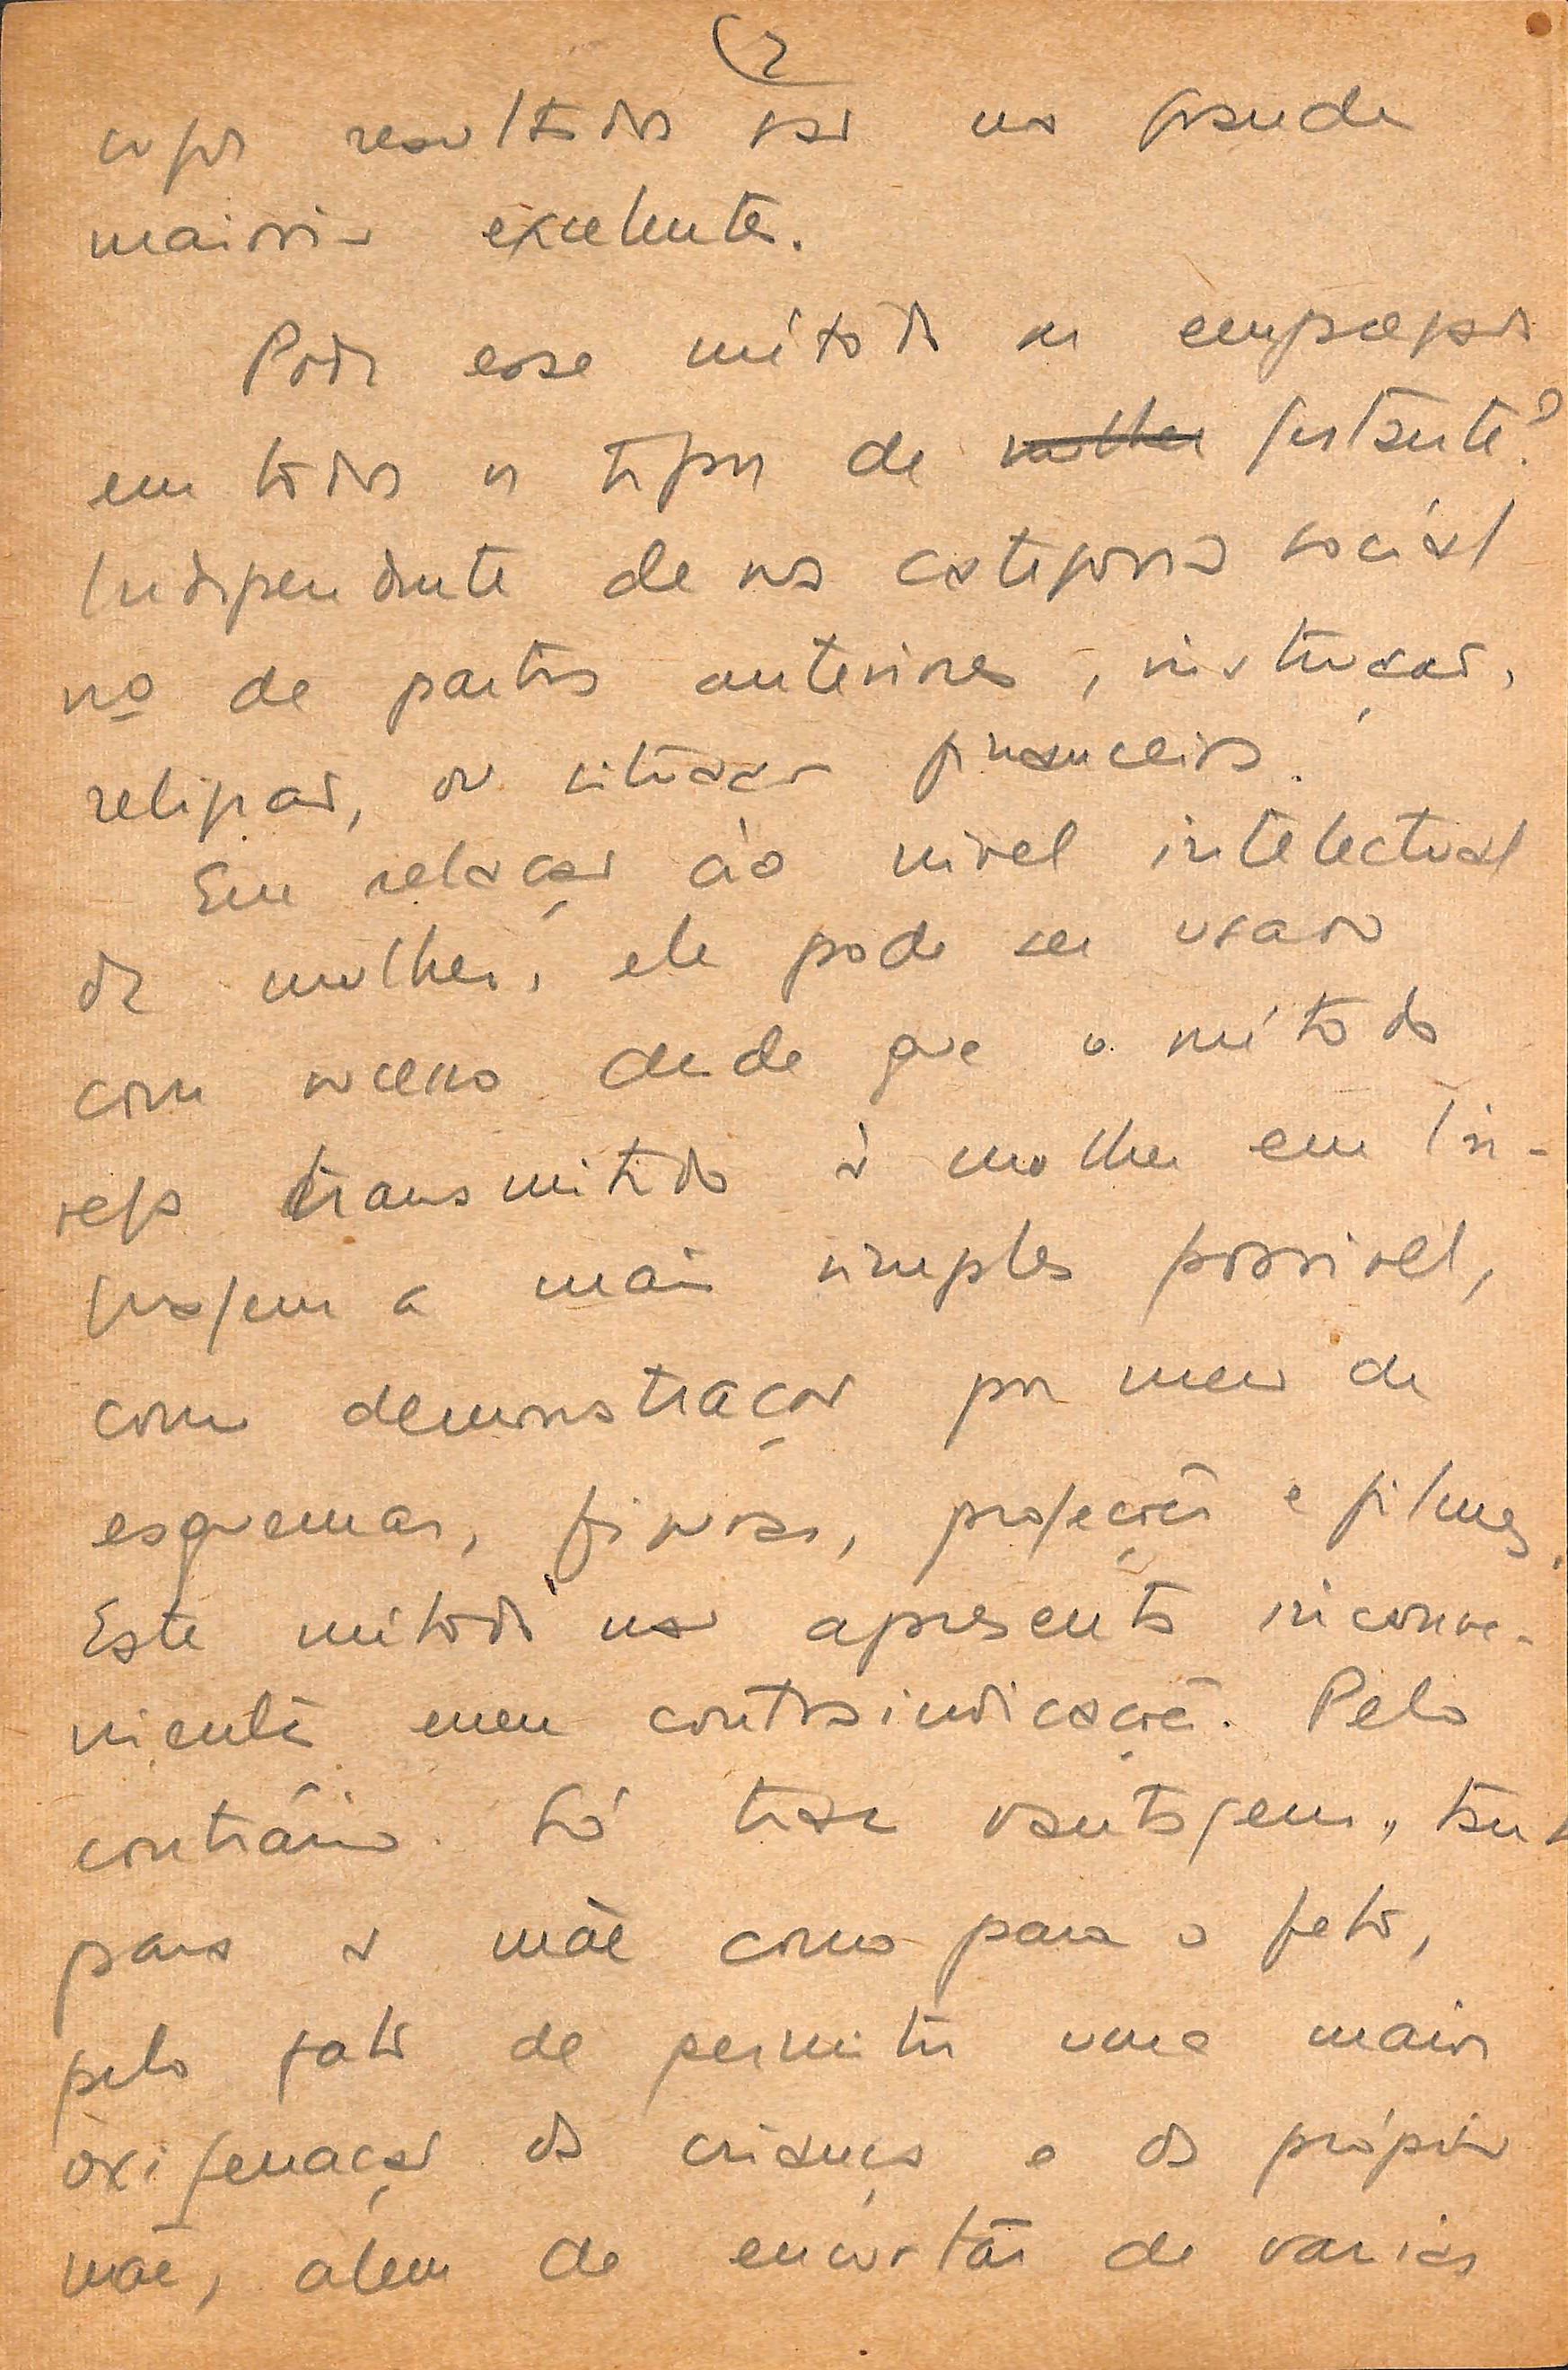 (2
cujos resultados são na grande
maioria excelentes.
Pode esse método ser empregado
em todos os tipos de mulher gestante?
Independente de sua categoria social
nº de partos anteriores, instrução,
religião, ou situação financeira.
Em relação ao nivel intelectual
da mulher, ele pode ser usado
com sucesso desde que o método
seja transmitido à mulher em lin-
guagem a mais simples possivel,
com demonstração por meio de
esquemas, figuras, projeções e filmes.
Este método não apresenta inconve-
nientes nem contraindicações. Pelo
contrário. Só traz vantagens, tanto
para a mãe como para o feto,
pelo fato de permitir uma maior
oxigenação da criança e da própria
mãe, além de encurtar de varias